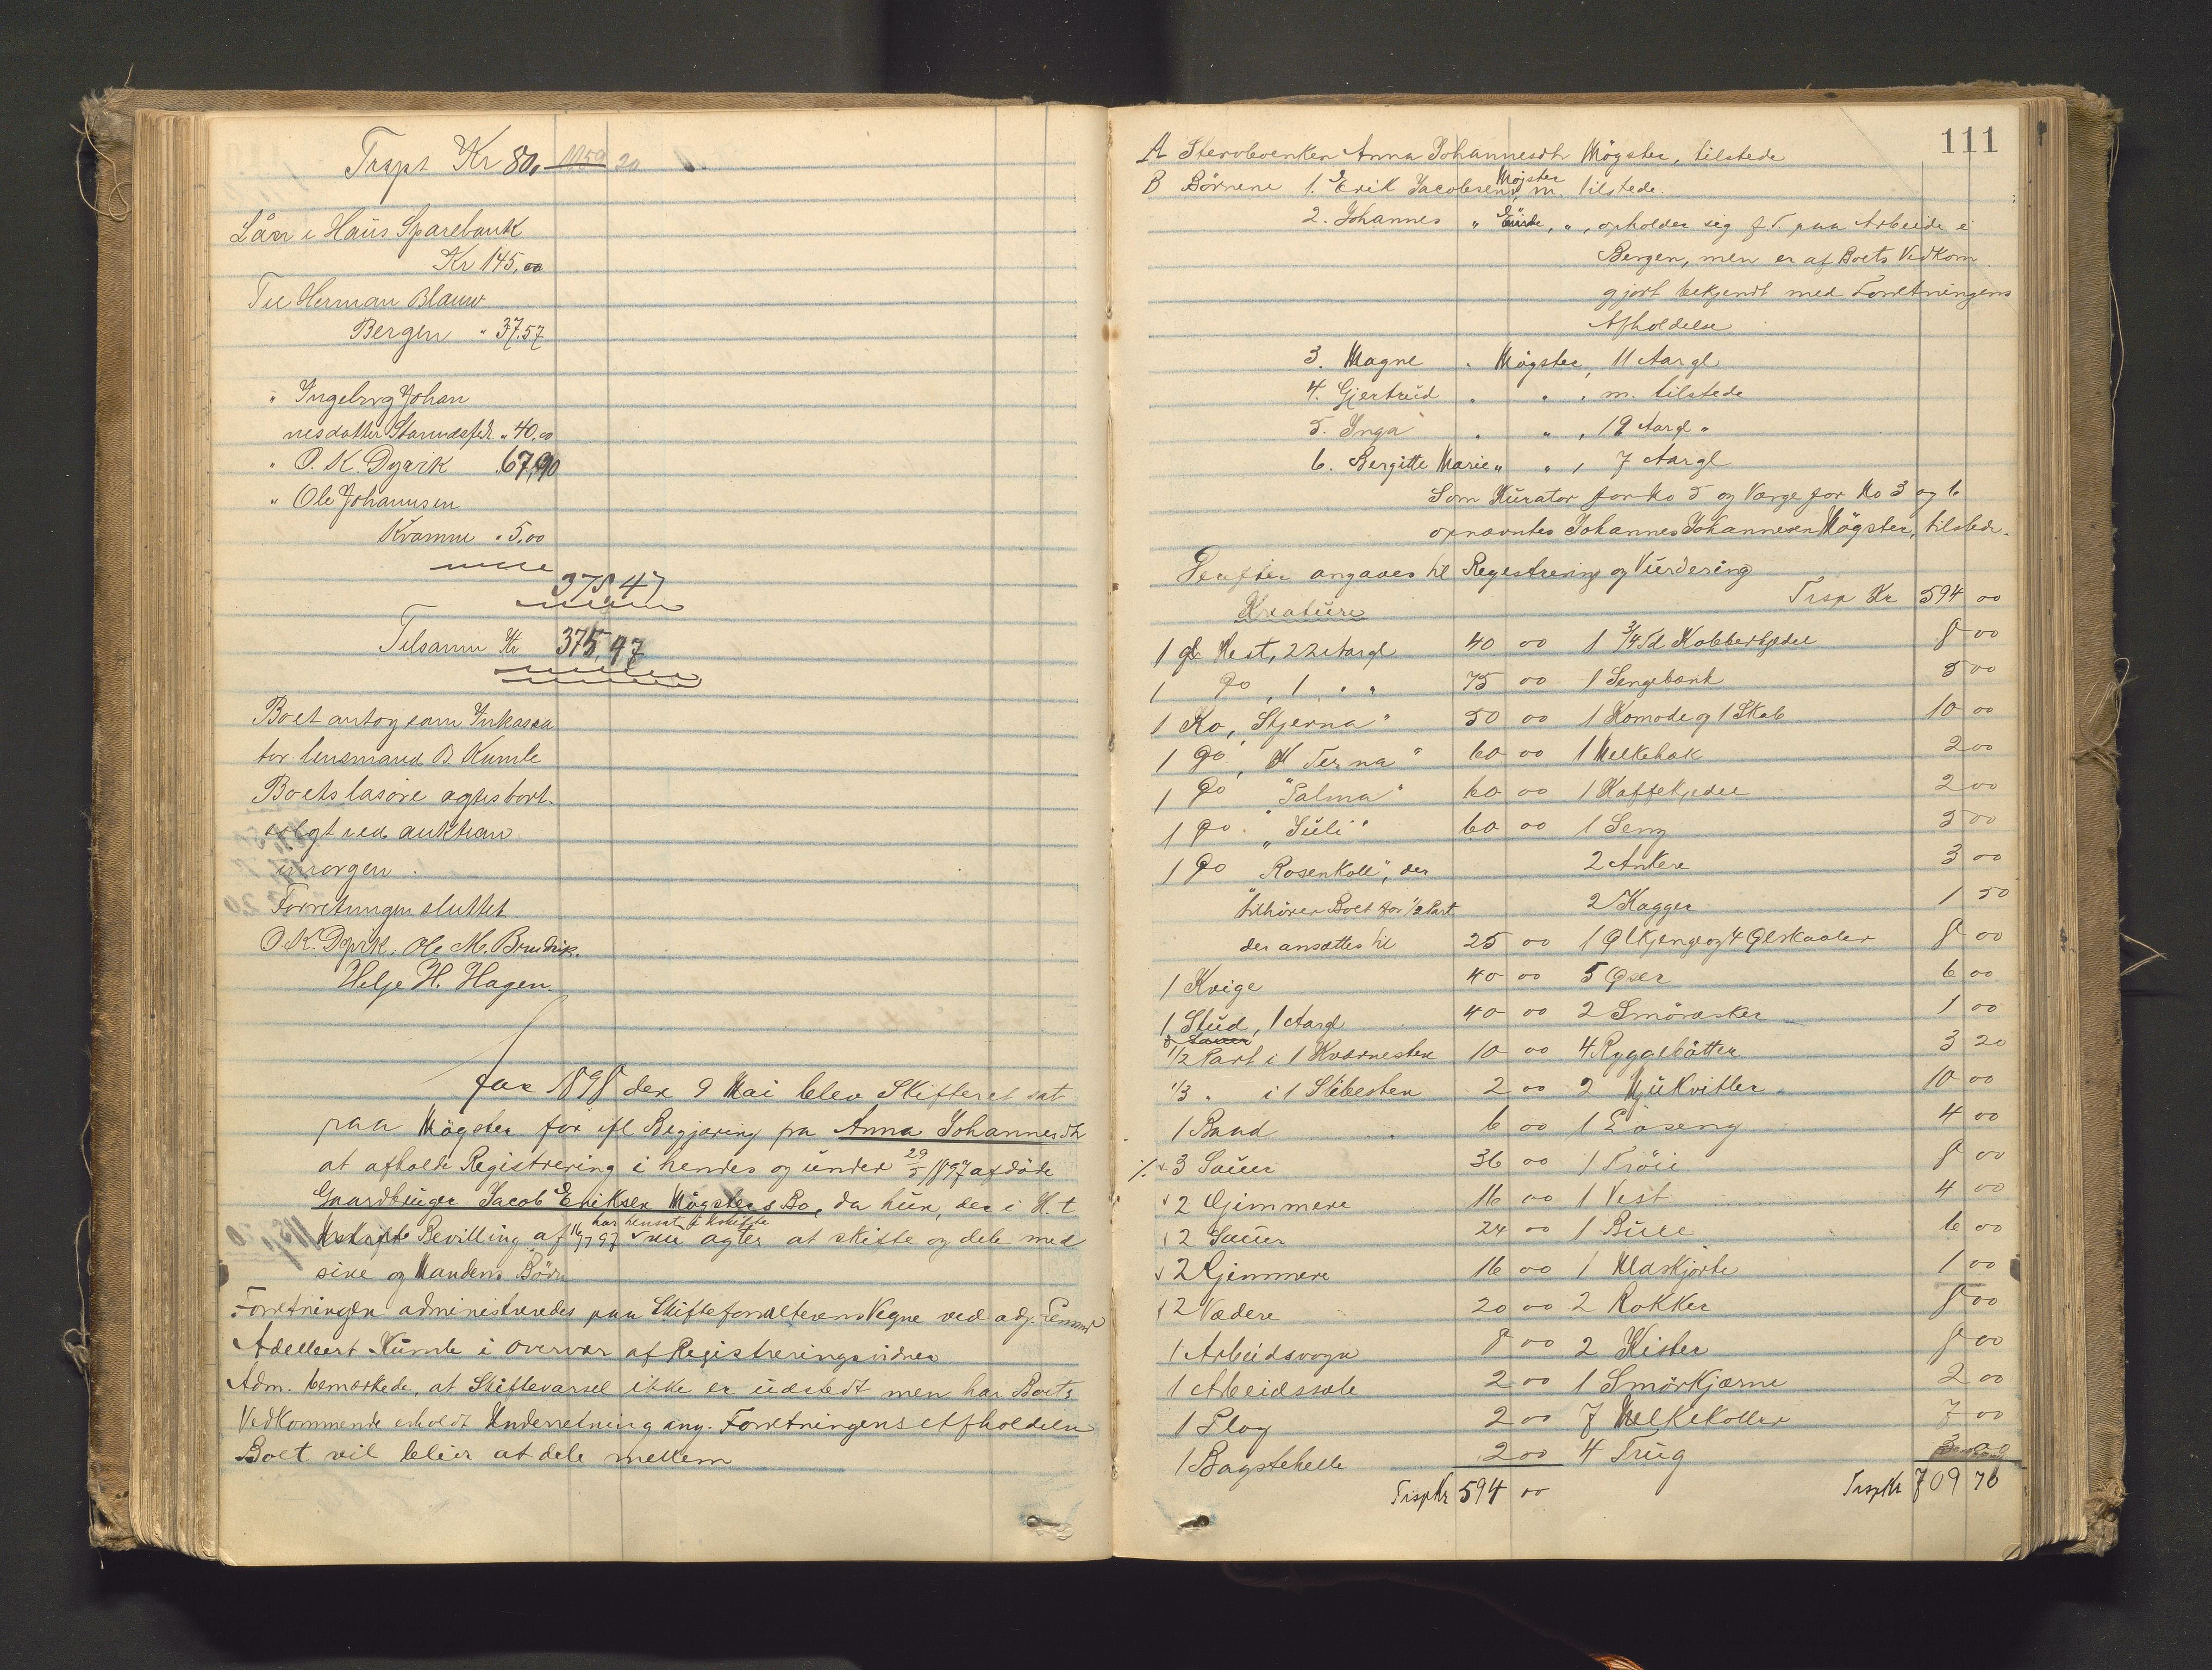 Trspt Kr 80, 1059 20
Lån i Haus Sparebank
Kr 145,00
Til Herman Blauw
Bergen " 37.57
" Ingeborg Johan
nesdatter " 40,00
" O. K. Dyvik 67,90
" Ole Johannesen
Kvamme " 5,00
375,47
Tilsamm Kr 375,47
Boet antog som Inkassa
tor lensmand B. Kumle
Boets løsøre agtes bort-
solgt ved auktion
imorgen.
Forretningen sluttet.
O. K. Dyvik. Ole M. Bruvik.
Helje H. Hagen.
Aar 1898 den 9 Mai blev Skifteret sat
paa Møgster for ifl Begjæring fra Anna Johannesdtr
at afholde Registrering i hendes og under 29/5 1897 afdøde
Gaardbruger Jacob Eriksen Møgsters Bo, da hun, der i H. t
har hensat i uskifte
Uskifte Bevilling af 16/7 97 nu agter at skifte og dele med
sine og Mandens Børn
Forretningen administreredes paa Skifteforvalterens Vegne ved adj. Lensmd
Adelbert Kumle i Overvær af Registreringsvidner
Adm. bemærkede, at Skiftevarsel ikke er udstedt men har Boets
Vedkommende erholdt Underretning ang. Forretningens Afholdelse
Boet vil bliver at dele mellem
111
A Stervboenken Anna Johannesdtr Møgster, tilstede
Møgster
B Børnene 1. Erik Jacobsen, m. tilstede.
2. Johannes " Eide, ", opholder sig f. T. paa Arbeide i
Bergen, men er af Boets Vedkom
gjort bekjendt med Forretningens
Afholdelse
3. Magne " Møgster, 11 Aar gl
4. Gjertrud " " , m. tilstede
5. Inga " " , 19 Aargl "
6. Bergitte Marie " " , 7 Aargl
Som Kurator for No 5 og Værge for No 3 og 6
opnævntes Johannes Johannesen Møgster, tilstede.
Derefter angaves til Registrering og Vurdering
Kreature Trsp Kr 594 00
1 gl Hest, 22 Aargl 40 00 1 3/4 Td Kobberkjedel 8 00
1 Do, 1 " " 75 00 1 Sengebænk 5 00
1 Ko, "Stjerna" 50 00 1 Komode og 1 Skab 10 00
1 Do, "Terna" 60 00 1 Melkebak 2 00
1 Do "Palma" 60 00 1 Kaffekjedel 2 00
1 Do "Juli" 60 00 1 Seng 5 00
1 Do "Rosenkoll", der 2 Ankere 3 00
tilhører Boet for 1/2 Part 2 Kagger 1 50
der ansættes til 25 00 1 Ølkjenge og 4 Ølskaaler 8 00
1 Kvige 40 00 5 Øser 6 00
1 Stud, 1 Aargl 40 00 2 Smøræsker 1 00
3 Sauer
1/2 Part i 1 Kværnesten 10 00 4 Ryggebøtter 3 20
1/3 " i 1 Slibesten 2 00 2 Hjukvitler 10 00
1 Baad 6 00 1 Easeng 4 00
3 Sauer 36 00 1 Trøie 8 00
2 Gimmere 16 00 1 Vest 4 00
2 Sauer 24 00 1 Buxe 6 00
2 Gimmere 16 00 1 Ulaskjorte 1 00
2 Vædere 20 00 2 Rokker 8 00
1 Arbeidsvogn 8 00 2 Kister 8 00
1 Arbeidssele 2 00 1 Smørkjærne 2 00
1 Plog 2 00 7 Melkekoller 7 00
1 Bagstehelle 2 00 4 Trug
Trsp Kr 594 00 Trsp Kr 709 70